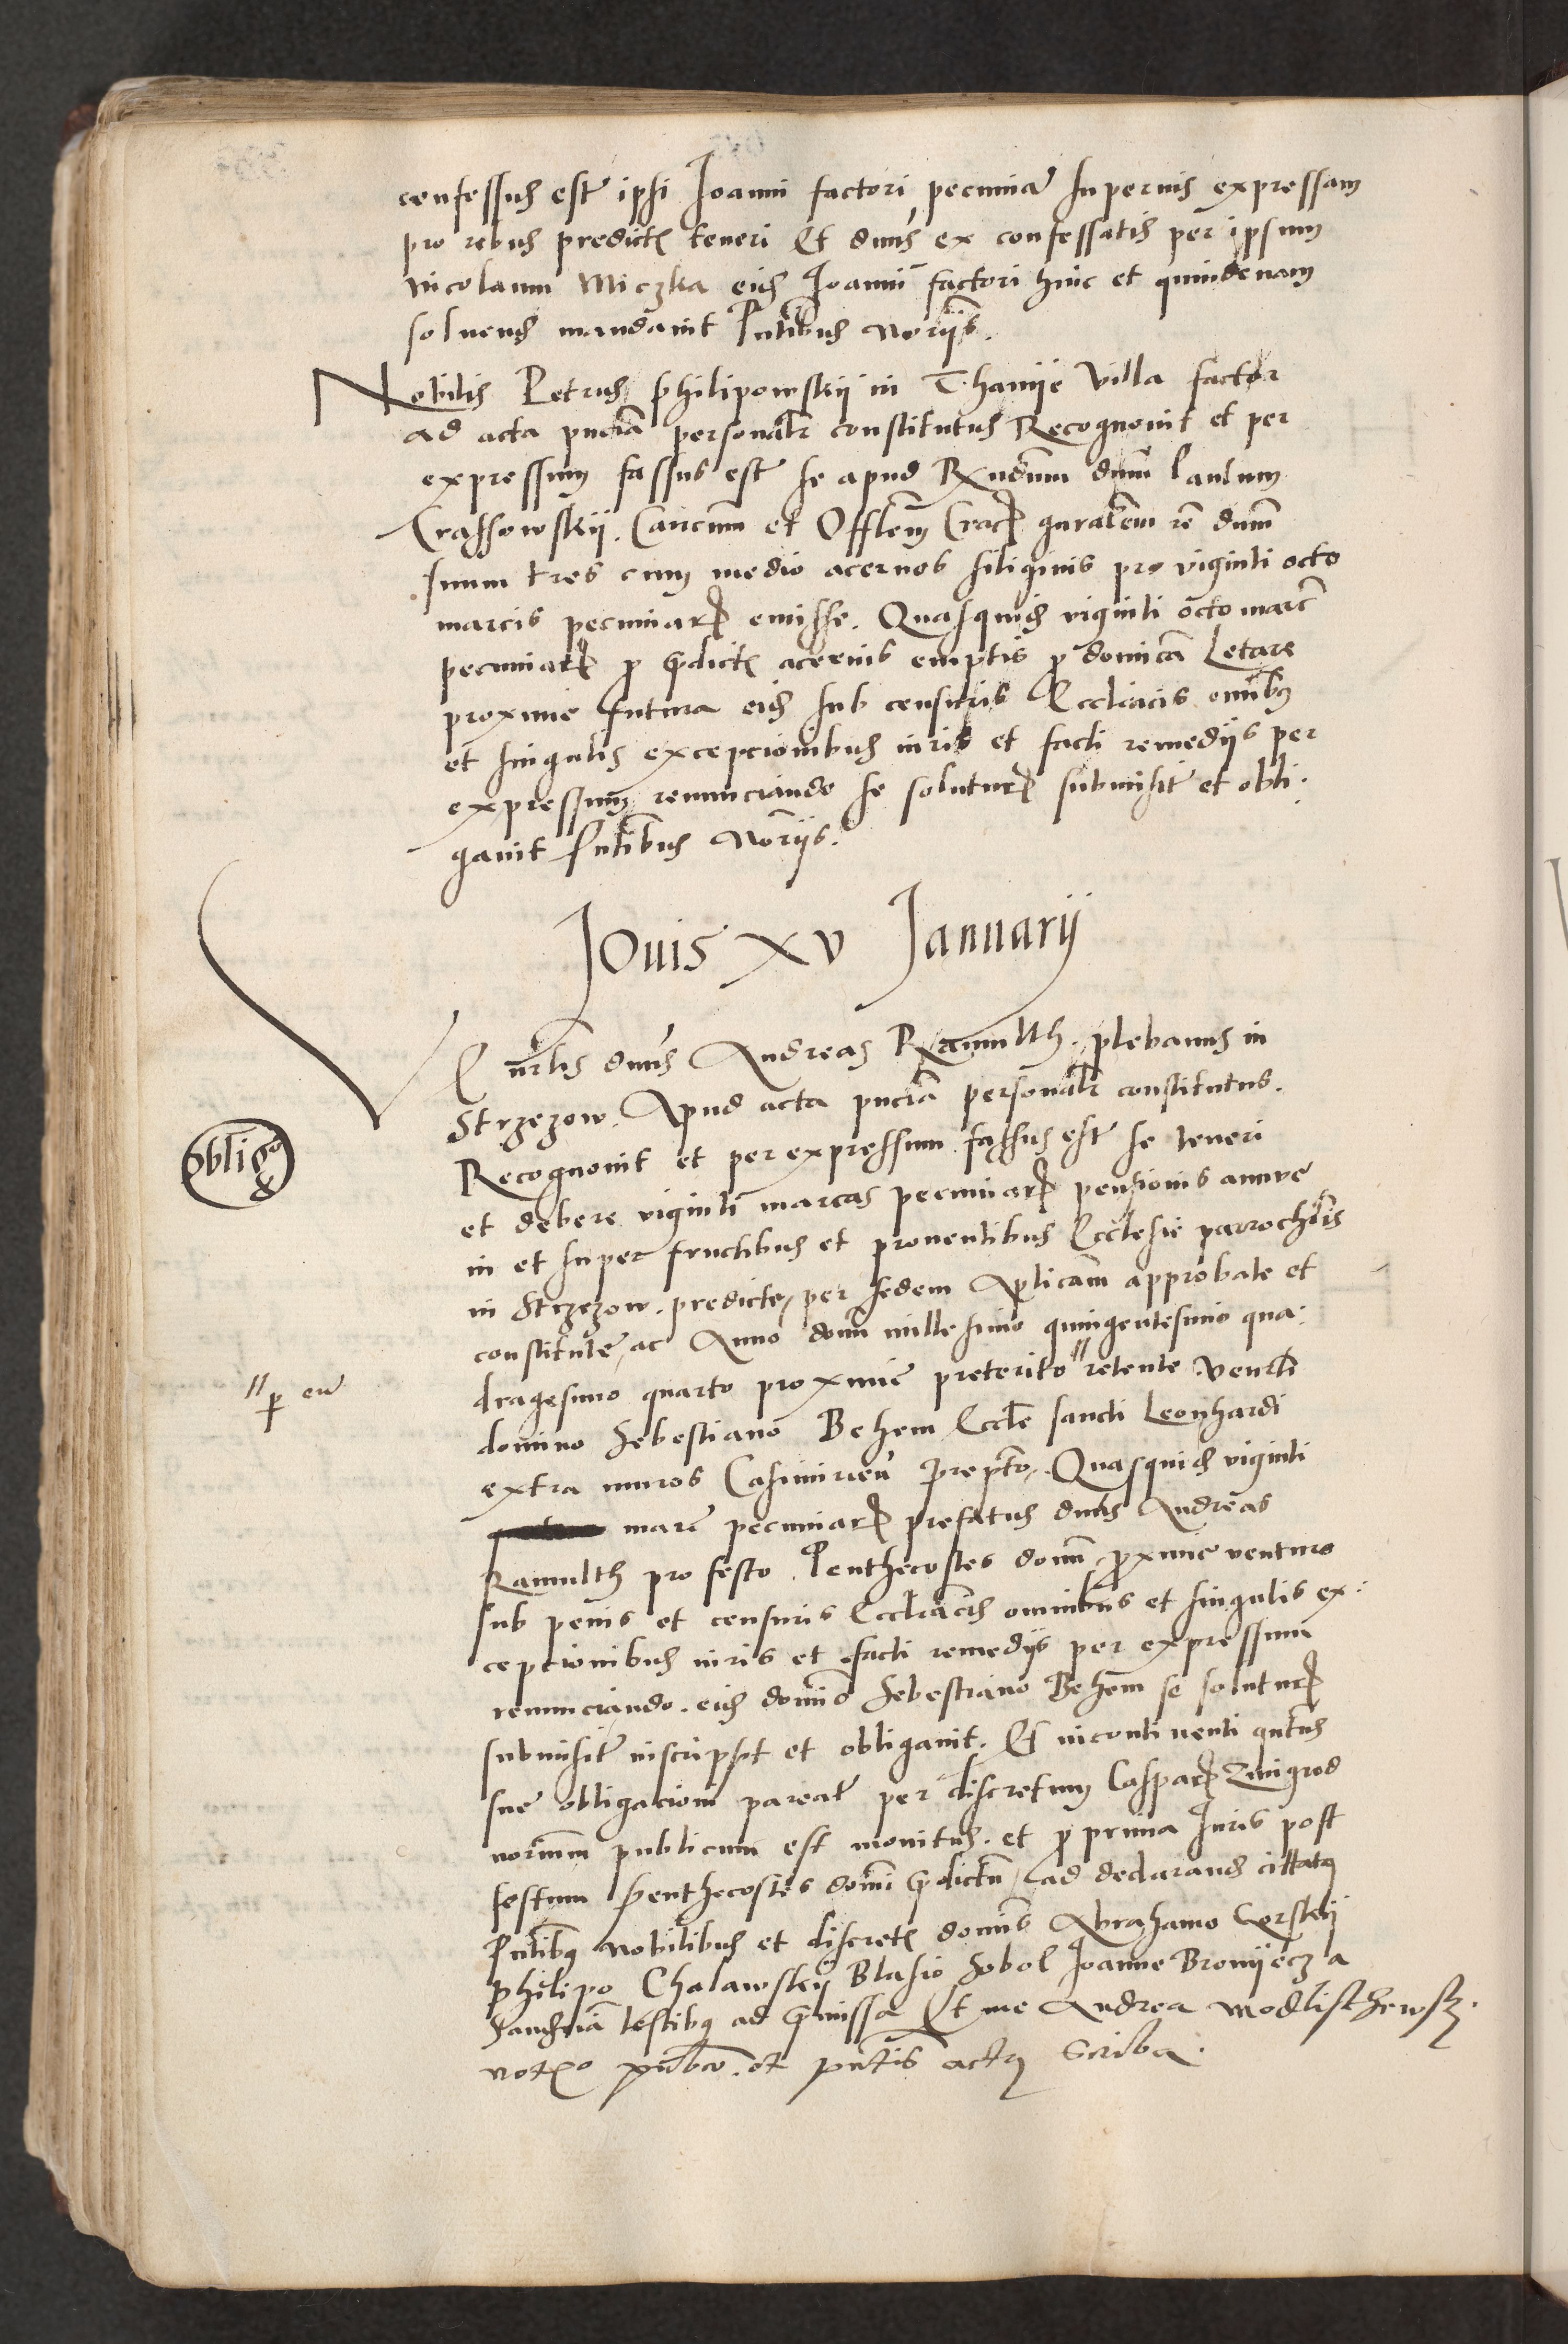 confessus est ipsi Joanni factori pecuniã superius expressam
pro rebus predictis teneri Et dnũs ex confessatis per ipsum
Nicolaum Miczka eidẽ Joanni factori hinc et quindenam
soluend mandauit Pntibus Norijs.
Nobilis Petrus philipowskij in Thamije Villa factor
ad acta pnciã personalr constitutus Recognouit et per
expressum fassus est se apud Rxndum dnũm Paulum
Crassowskij. Canonicum et Offlem Crac gnralem dnm
suum tres cum medio aceruos siliginis pro viginti octo
marcis pecuniar emisse. Quasquid viginti octo marc
pecuniar p predict aceruis emptis p domicã Letare
proxime futura eid sub censuris Eccliacis omnibus
et singulis excepcionibus iuris et facti remedijs per
expressum renunciando se solutur submisit et obli-
gauit Pntibus Norijs.
Jouis xv Januarij
dnũs Andreas Ramulth. plebanus in
Strzezow. Apud acta pnciã personalr constitutus.
Recognouit et per expressum fassus est se teneri
et debere viginti marcas pecuniar pensionis annue
in et super fructibus et prouentibus Ecclesie parrochlis
in Strzezow. predicte, per sedem Aplicam approbate et
constitute, ac Anno domi millesimo quingentesimo qua-
dragesimo quarto proxime preterito // retente Venrli
domino Sebestiano Behem Eccle sancti Leonhardi
extra muros Casimirien prepto. Quasquid viginti
marc pecuniar prefatus dnũs Andreas
Ramulth pro festo Penthecostes domi proxime venturo
sub penis et censuris Eccliacis omnibus et singulis ex-
cepcionibus iuris et facti remedijs per expressum
renunciando. eid domino Sebestiano Behem se solutur
submisit inscripsit et obligauit. Et incontinenti qntus
sue obligacioni pareat per discretum Caspar Zmigrod
norium publicum est monitus. et p prima Juris post
festum Penthecostes domi predictu, ad declarand cittatus
Pntibus Nobilibus et discretis dominis Abrahamo Gorskij
philipo Chalawskij Blasio Sobol Joanne Bronijecz a
testibus ad premissa Et me Andrea Modlischewsk.
notario publico. et pntis actus Scriba.
obligo
// p eũ